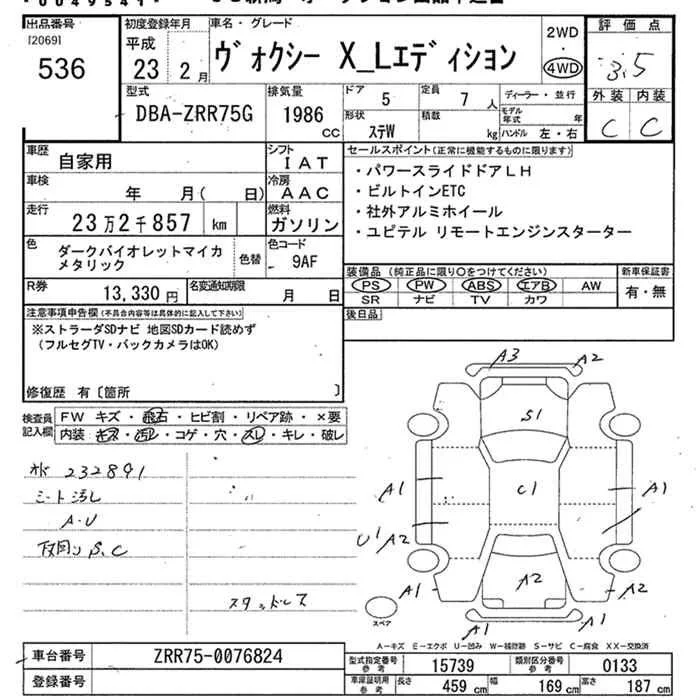 0049541
出品番号
[2069]
536
初度登録年月
平成
23 2月
車名・グレード
ヴォクシー X_Lエディション
2WD
・
4WD
評価点
3.5
外装 内装
C C
型式
DBA-ZRR75G
排気量
1986
CC
ドア 5
定員 7人
ディーラー・並行
形状 ステW
積載 kg
モデル年式 年
ハンドル 左・右
車歴
自家用
シフト
IAT
車検
年 月( 日)
冷房
AAC
走行
23万2千857 km
燃料
ガソリン
色
ダークバイオレットマイカ
メタリック
色替
色コード
9AF
R券
13,330円
名変通知期限
月 日
セールスポイント(正常に機能するものに限ります)
・パワースライドドアLH
・ビルトインETC
・社外アルミホイール
・ユピテル リモートエンジンスターター
装備品 (純正品に限り○をつけてください)
PS PW ABS エアB AW
SR ナビ TV カワ
新車保証書
有・無
後日品
注意事項申告欄(不具合内容等は具体的に記入して下さい)
※ストラーダSDナビ 地図SDカード読めず
(フルセグTV・バックカメラはOK)
修復歴 有〔箇所 〕
検査員
記入欄
FW キズ・飛石・ヒビ割・リペア跡・×要
内装・キズ・汚レ・コゲ・穴・スレ・キレ・破レ
232891
A・U
下廻り S、C
スタッドレス
A3 A2
S1
A1 C1 A1
U1 A2
A1 A2 A2
A1 A1
スペア
A-キズ E-エクボ U-凹み W-補修跡 S-サビ C-腐食 XX-交換済
車台番号
ZRR75-0076824
登録番号
型式指定番号
参考
15739
類別区分番号
参考
0133
車庫証明用
参考
長さ 459cm 幅 169cm 高さ 187cm